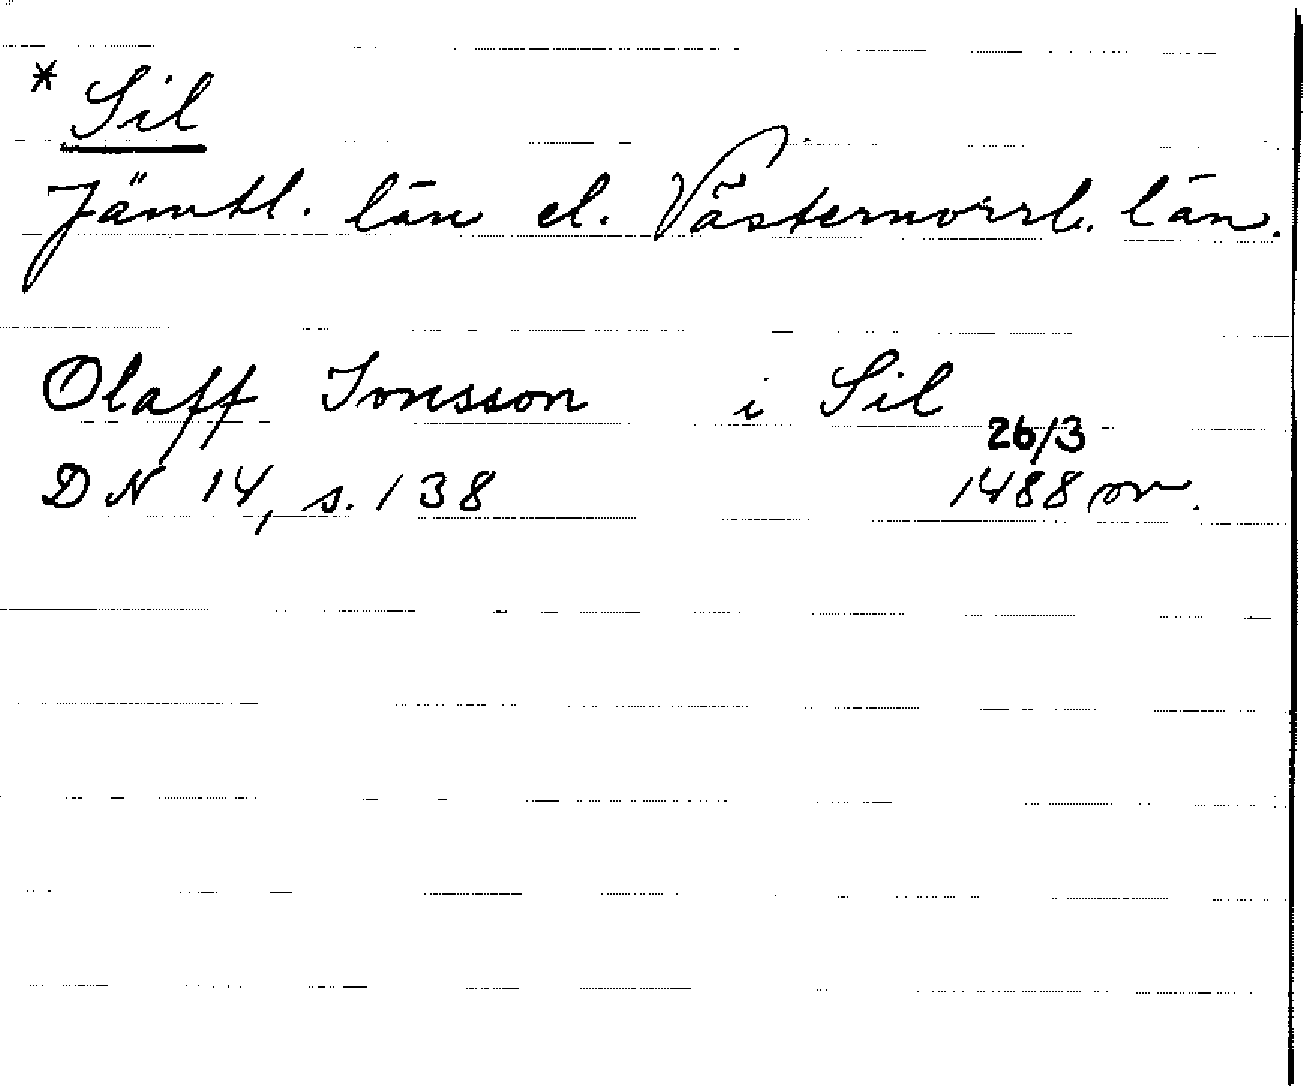 * Sil
Jämtl. län el. Västernorrl. län.
Olaff Jonsson i Sil
26/3
DN 14, s. 138 1488 or.